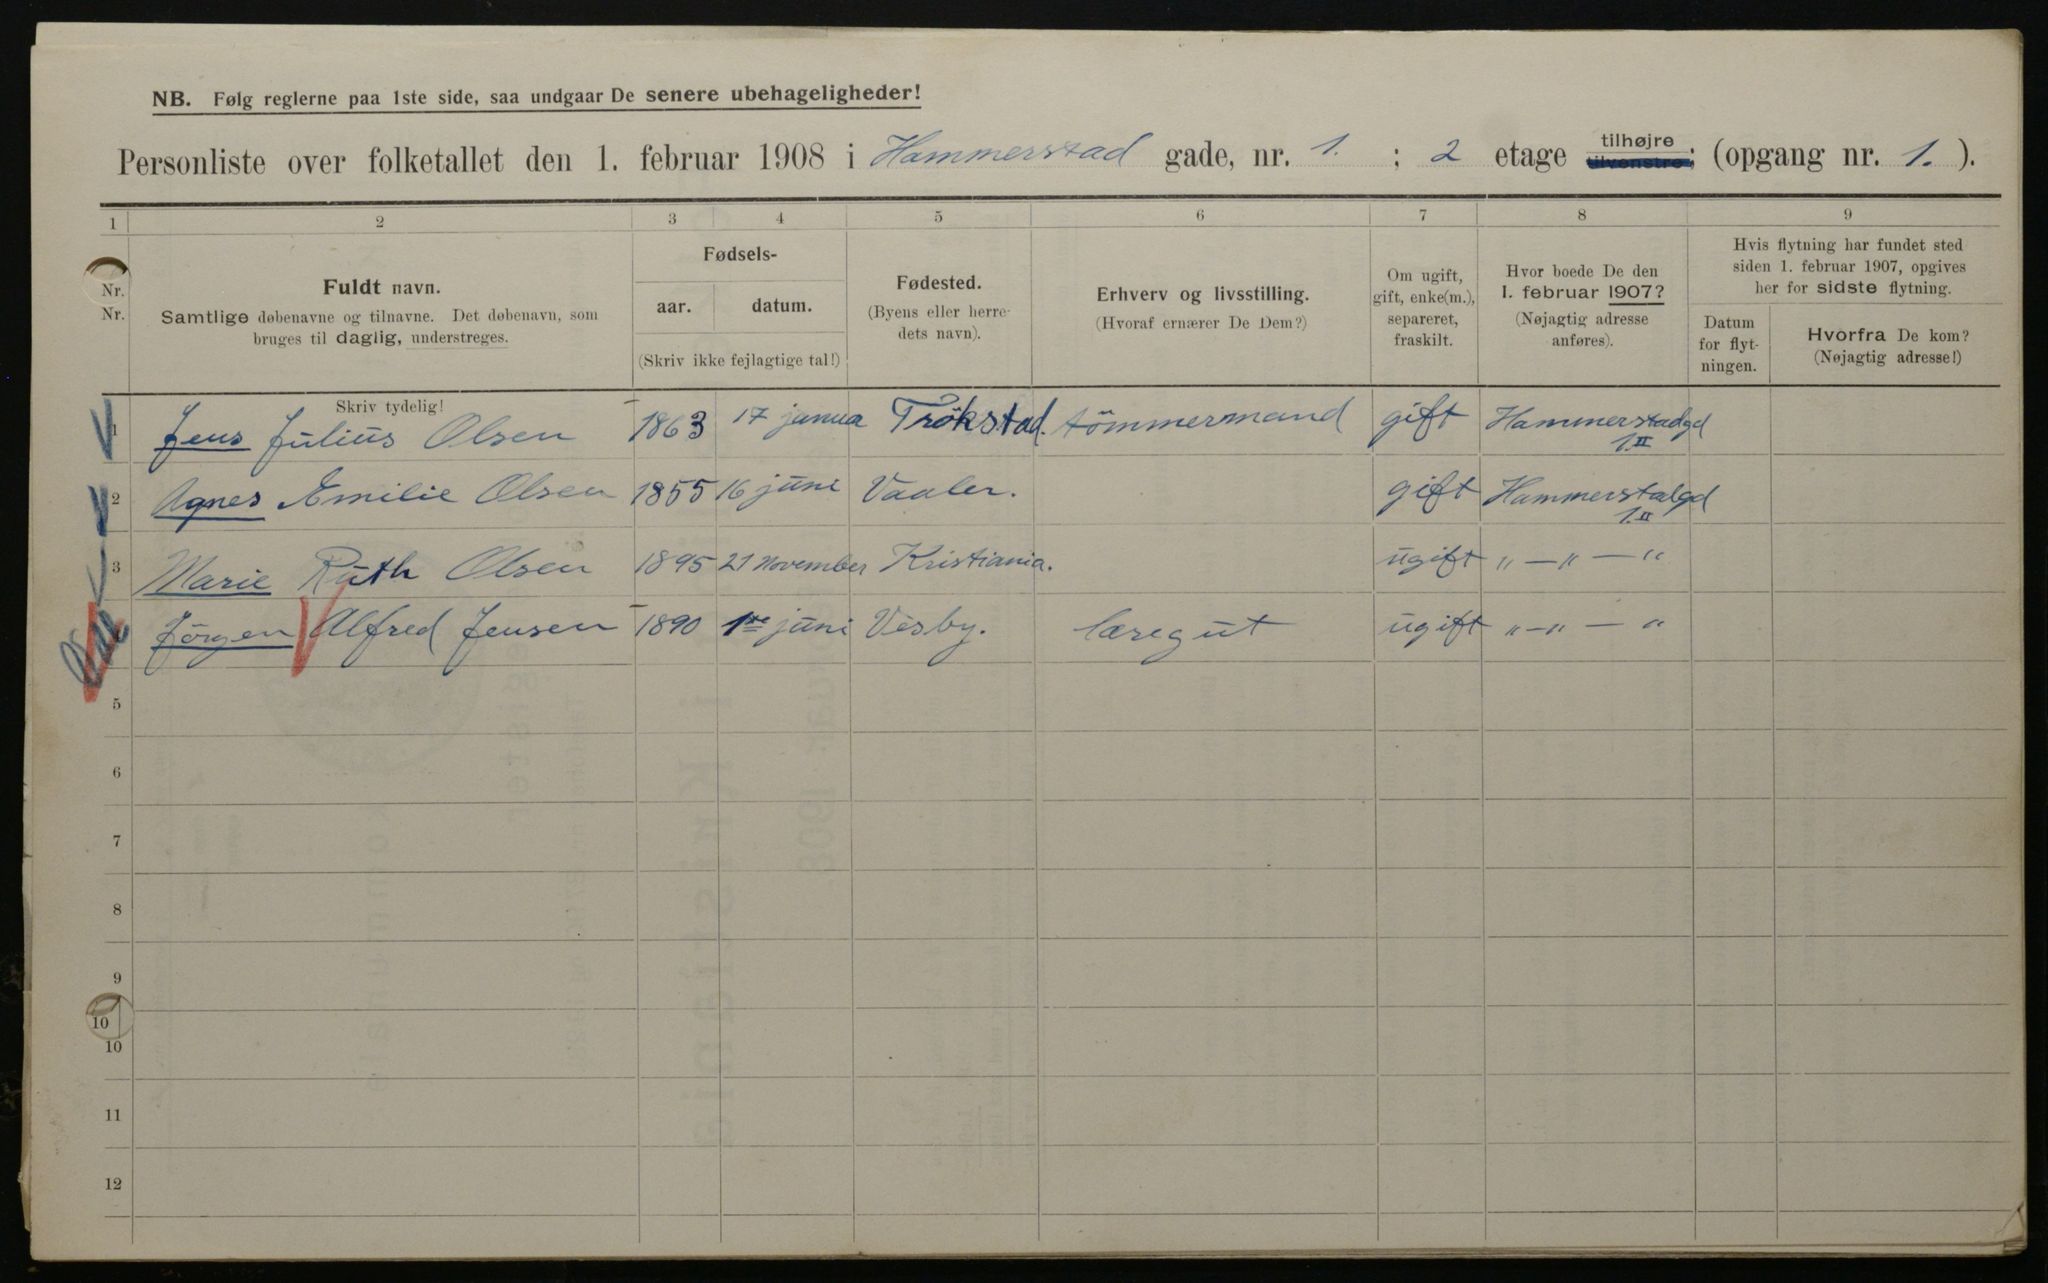 NB. Følg reglerne paa 1ste side, saa undgaar De senere ubehageligheder!
Personliste over folketallet den 1. februar 1908 i Hammerstad gade, nr. 1. ; 2 etage tilhøjre tilvenstre; (opgang nr. 1. ).
1 2 3 4 5 6 7 8 9
Nr. Nr.
Fuldt navn.
Samtlige døbenavne og tilnavne. Det døbenavn, som
bruges til daglig, understreges.
Skriv tydelig!
Fødsels-
aar. datum.
(Skriv ikke fejlagtige tal!)
Fødested.
(Byens eller herre-
dets navn).
Erhverv og livsstilling.
(Hvoraf ernærer De Dem?)
Om ugift,
gift, enke(m.),
separeret,
fraskilt.
Hvor boede De den
1. februar 1907?
(Nøjagtig adresse
anføres).
Hvis flytning har fundet sted
siden 1. februar 1907, opgives
her for sidste flytning.
Datum
for flyt-
ningen.
Hvorfra De kom?
(Nøjagtig adresse!)
1 Jens Julius Olsen 1863 17 janua Trökstad. tömmermand gift Hammerstadgd
1.II
2 Agnes Emilie Olsen 1855 16 juni Vaaler. gift Hammerstalgd
1.II
3 Marie Ruth Olsen 1895 21 November Kristiania. ugift „ — „ — „
Jörgen Alfred Jensen 1890 1ste juni Vesby. læregut ugift „ — „ — „
5
6
7
8
9
10
10
11
12